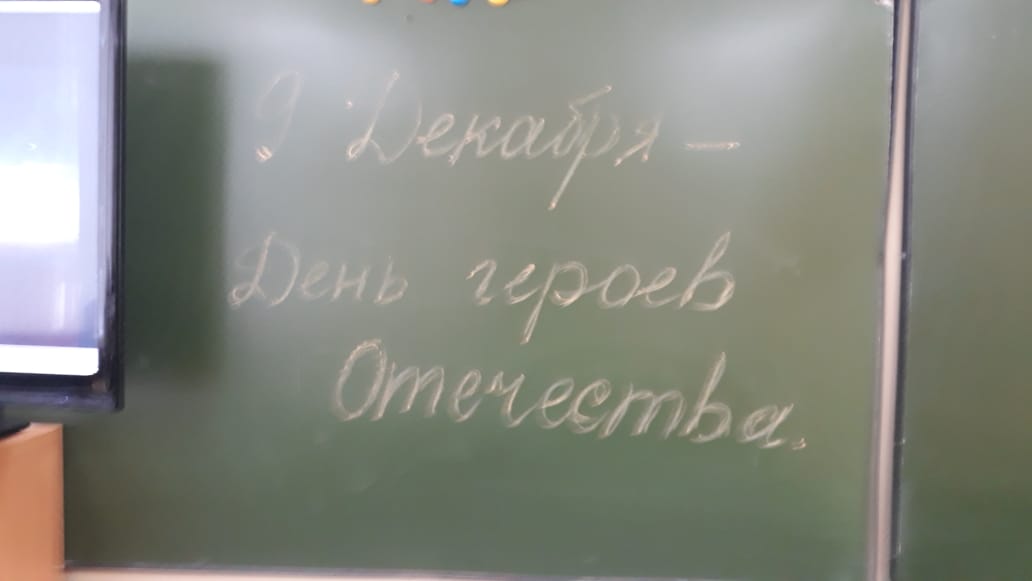 9 Декабря –
День героев
Отечества.